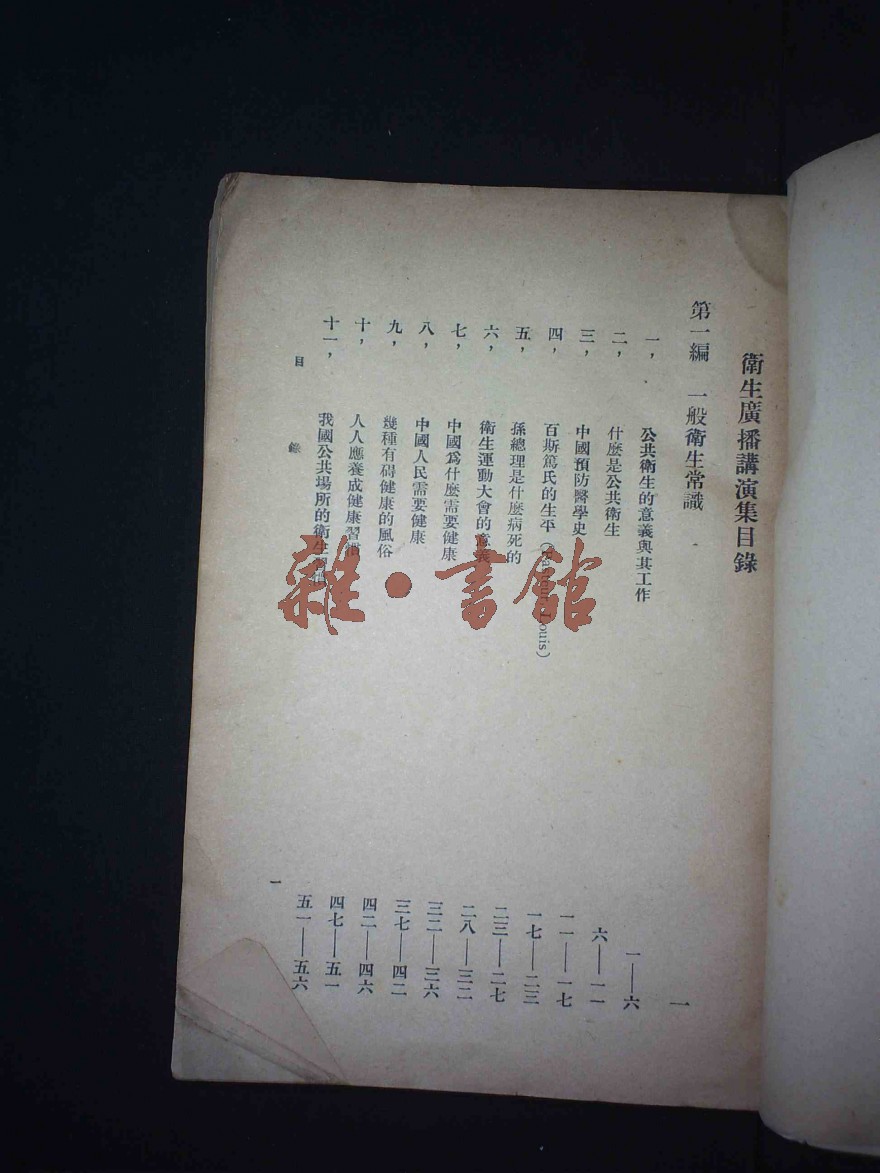 衛生廣播講演集目錄
第一編 一般衛生常識 一
一， 公共衛生的意義與其工作 一——六
二， 什麼是公共衛生 六——一一
三， 中國預防醫學史 一一——一七
四， 百斯篤氏的生平（Pasteur Louis） 一七——二三
五， 孫總理是什麼病死的 二三——二七
六， 衛生運動大會的意義 二八——三二
七， 中國爲什麼需要健康 三二——三六
八， 中國人民需要健康 三七——四二
九， 幾種有碍健康的風俗 四二——四六
十， 人人應養成健康習慣 四七——五一
十一， 我國公共場所的衛生習慣 五一——五六
目錄 一
雜·書館